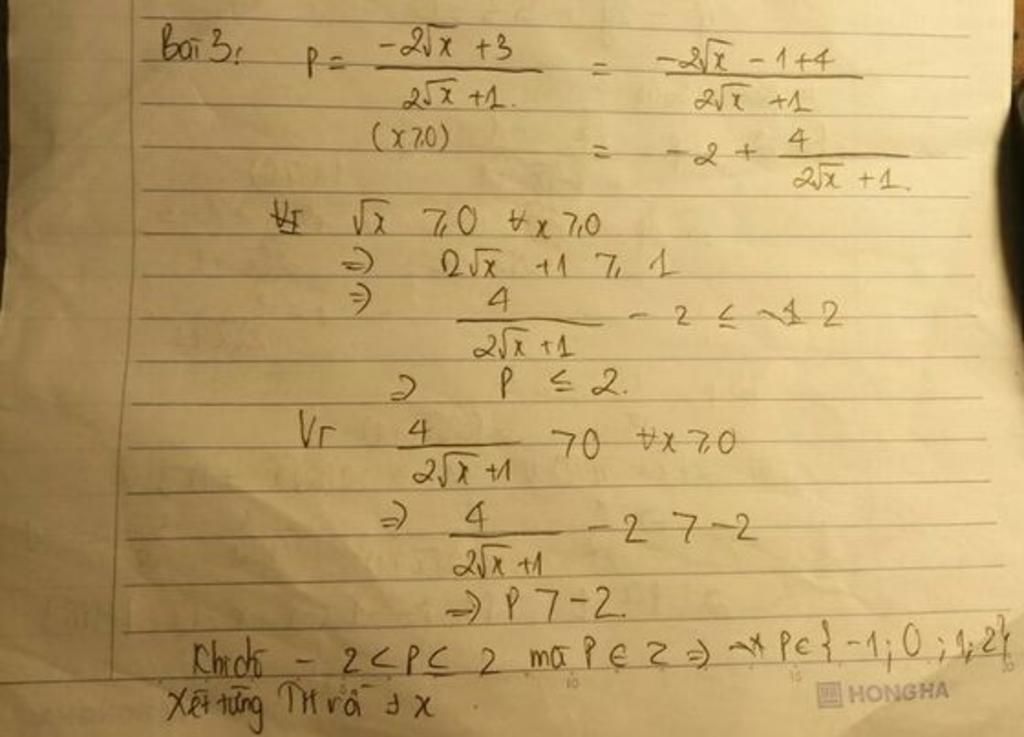 Bài 3: P = (-2√x + 3)/(2√x + 1) = (-2√x - 1 + 4)/(2√x + 1)
(x ⩾ 0) = -2 + 4/(2√x + 1)
Vì √x ⩾ 0 ∀x ⩾ 0
=> 2√x + 1 ⩾ 1
=> 4/(2√x + 1) - 2 ≤ 2
=> P ≤ 2.
Vì 4/(2√x + 1) > 0 ∀x ⩾ 0
=> 4/(2√x + 1) - 2 > -2
=> P > -2.
Khi đó -2 < P ≤ 2 mà P ∈ Z => P ∈ {-1; 0; 1; 2}
Xét từng TH x
HONGHA